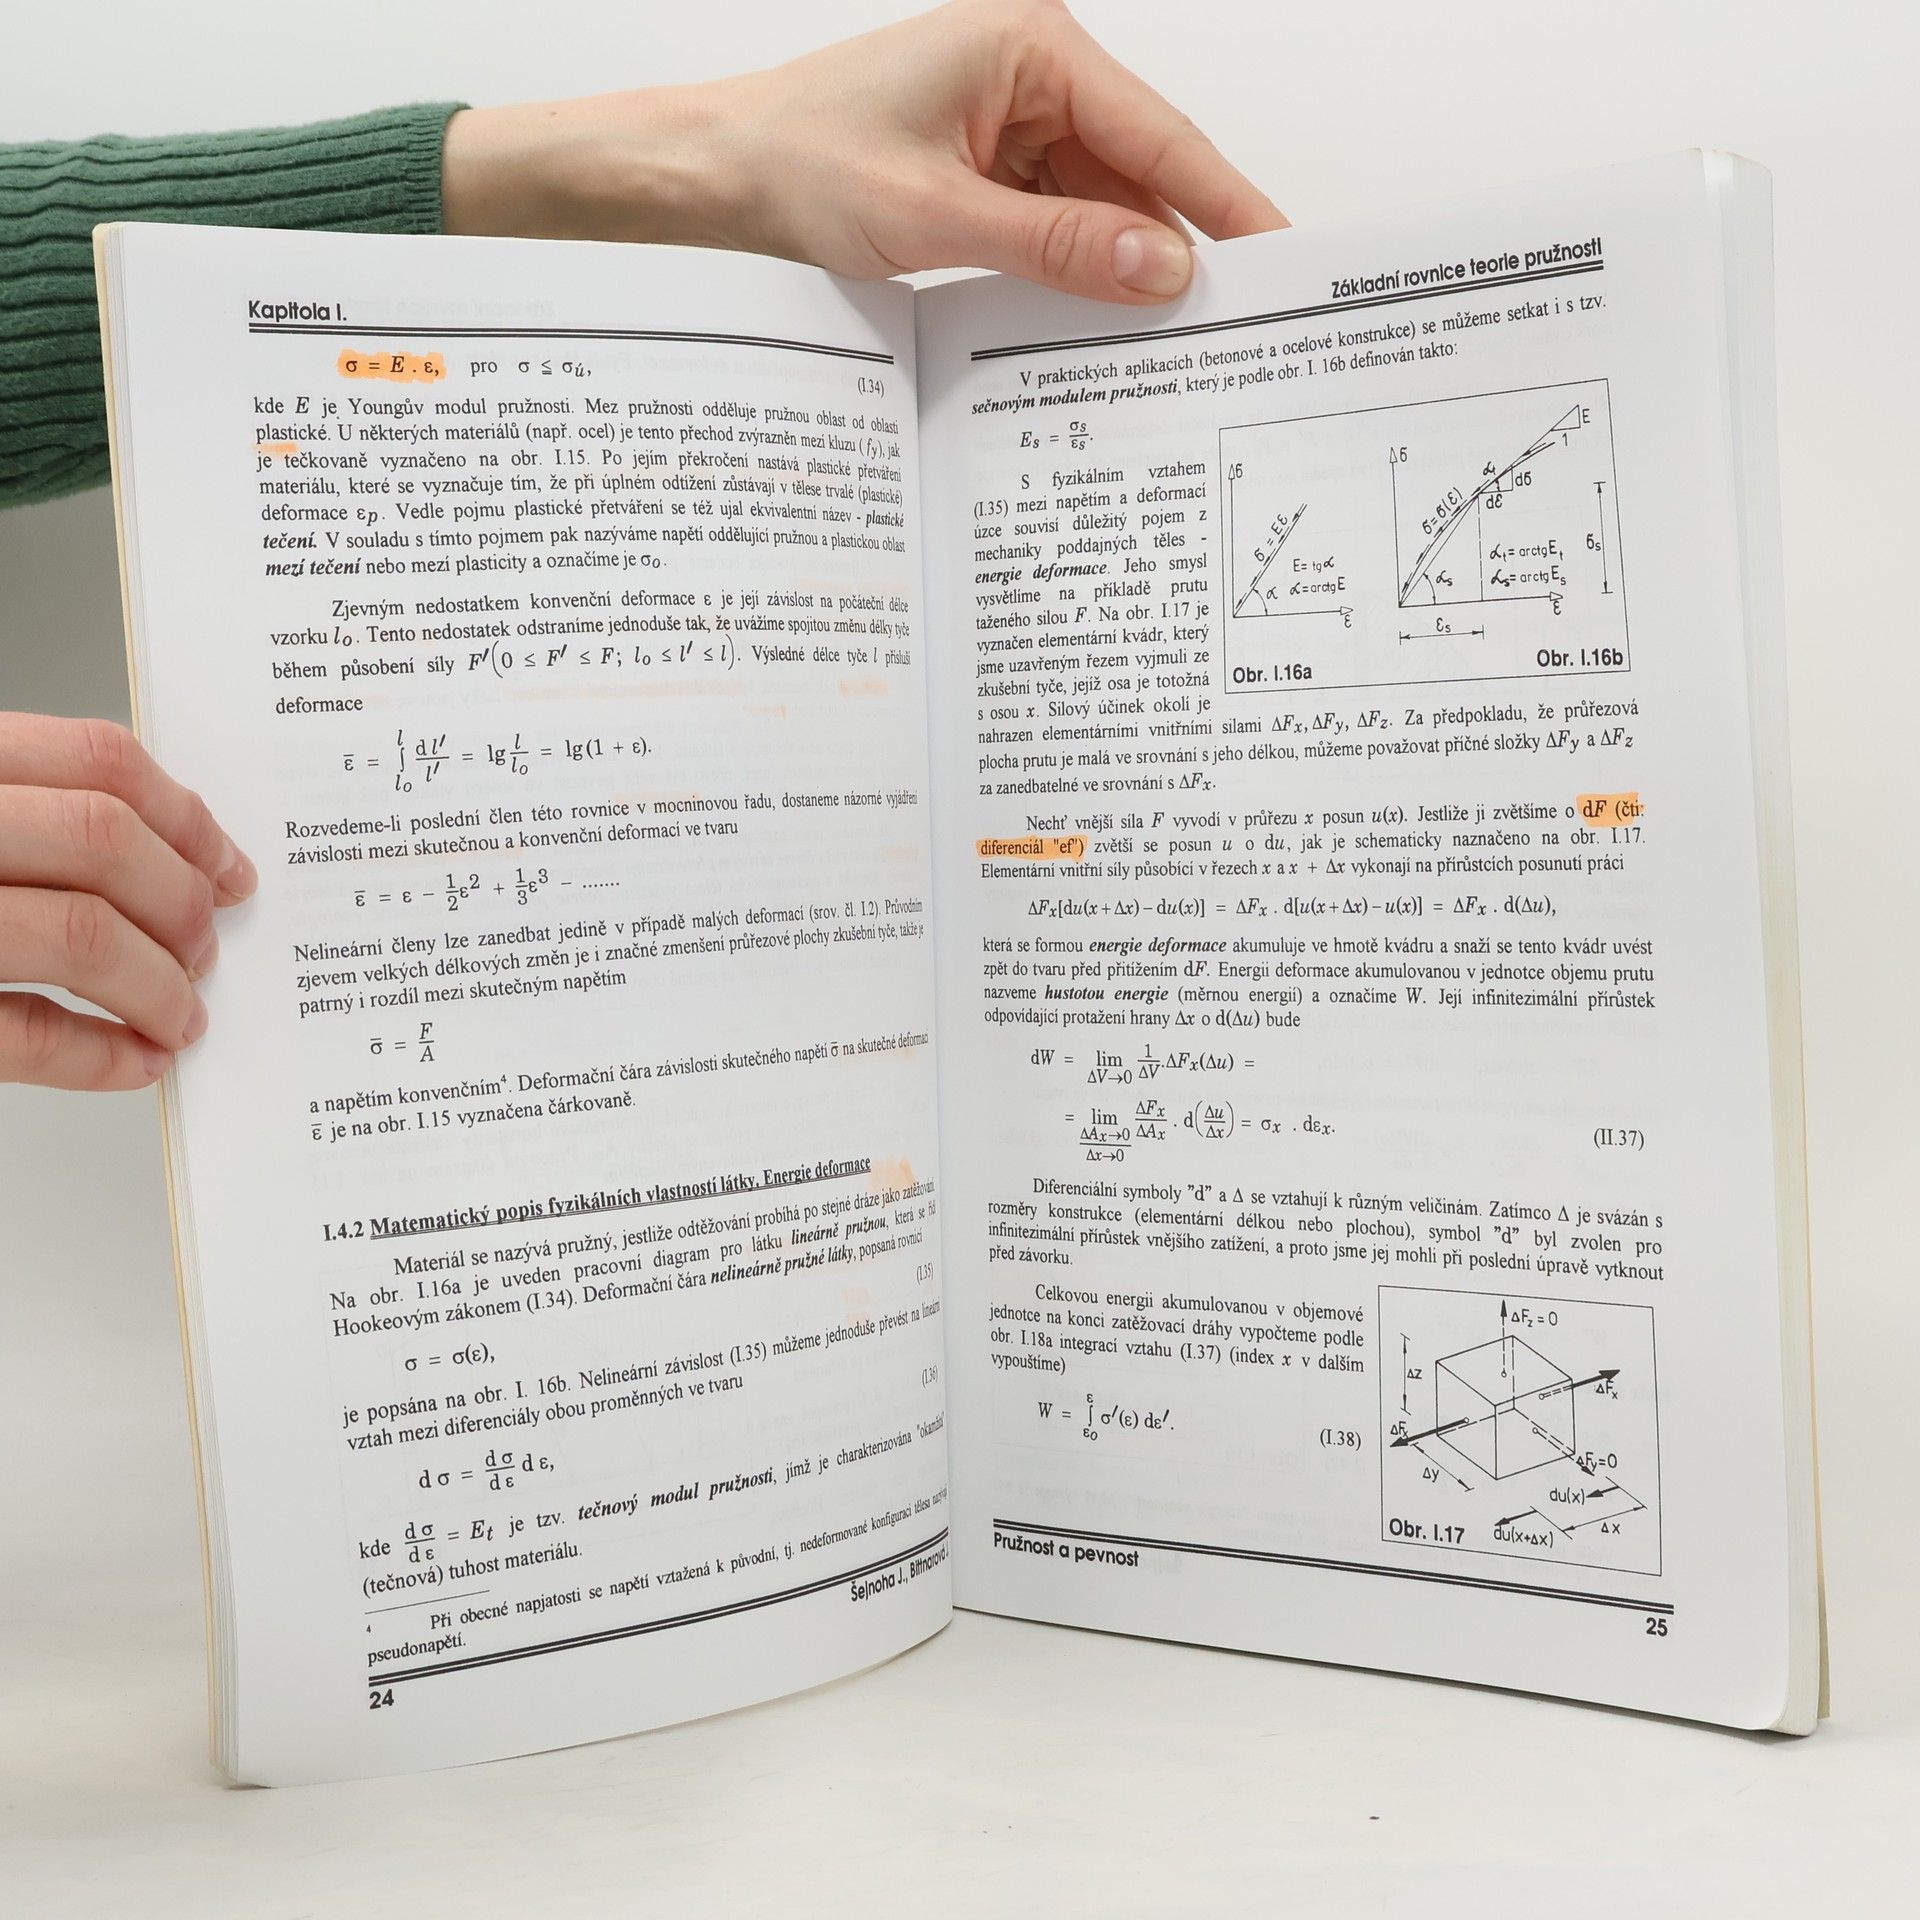 Kapitola I.
σ = E . ε, pro σ ≦ σú,
(I.34)
kde E je Youngův modul pružnosti. Mez pružnosti odděluje pružnou oblast od oblasti
plastické. U některých materiálů (např. ocel) je tento přechod zvýrazněn mezi kluzu (fy), jak
je tečkovaně vyznačeno na obr. I.15. Po jejím překročení nastává plastické přetváření
materiálu, které se vyznačuje tím, že při úplném odtížení zůstávají v tělese trvalé (plastické)
deformace εp. Vedle pojmu plastické přetváření se též ujal ekvivalentní název - plastické
tečení. V souladu s tímto pojmem pak nazýváme napětí oddělující pružnou a plastickou oblast
mezí tečení nebo mezí plasticity a označíme je σo.
Zjevným nedostatkem konvenční deformace ε je její závislost na počáteční délce
vzorku lo. Tento nedostatek odstraníme jednoduše tak, že uvážíme spojitou změnu délky tyče
během působení síly F′(0 ≤ F′ ≤ F; lo ≤ l′ ≤ l). Výsledné délce tyče l přísluší
deformace
ε̅ = ∫ l lo dl′/l′ = lg l/lo = lg(1 + ε).
Rozvedeme-li poslední člen této rovnice v mocninovou řadu, dostaneme názorné vyjádření
závislosti mezi skutečnou a konvenční deformací ve tvaru
ε̅ = ε − 1/2 ε2 + 1/3 ε3 − .......
Nelineární členy lze zanedbat jedině v případě malých deformací (srov. čl. I.2). Průvodním
zjevem velkých délkových změn je i značné zmenšení průřezové plochy zkušební tyče, takže je
patrný i rozdíl mezi skutečným napětím
σ̅ = F/A
a napětím konvenčním4. Deformační čára závislosti skutečného napětí σ̅ na skutečné deformaci
ε̅ je na obr. I.15 vyznačena čárkovaně.
I.4.2 Matematický popis fyzikálních vlastností látky. Energie deformace
Materiál se nazývá pružný, jestliže odtěžování probíhá po stejné dráze jako zatěžování.
Na obr. I.16a je uveden pracovní diagram pro látku lineárně pružnou, která se řídí
Hookeovým zákonem (I.34). Deformační čára nelineárně pružné látky, popsaná rovnicí
(I.35)
σ = σ(ε),
je popsána na obr. I. 16b. Nelineární závislost (I.35) můžeme jednoduše převést na lineární
vztah mezi diferenciály obou proměnných ve tvaru
(I.36)
dσ = dσ/dε dε,
kde dσ/dε = Et je tzv. tečnový modul pružnosti, jímž je charakterizována "okamžitá"
(tečnová) tuhost materiálu.
4 Při obecné napjatosti se napětí vztažená k původní, tj. nedeformované konfiguraci tělesa nazývají
pseudonapětí.
Šejnoha J., Bittnarová J.
24
Základní rovnice teorie pružnosti
V praktických aplikacích (betonové a ocelové konstrukce) se můžeme setkat i s tzv.
sečnovým modulem pružnosti, který je podle obr. I. 16b definován takto:
Es = σs/εs.
S fyzikálním vztahem
(I.35) mezi napětím a deformací
úzce souvisí důležitý pojem z
mechaniky poddajných těles -
energie deformace. Jeho smysl
vysvětlíme na příkladě prutu
taženého silou F. Na obr. I.17 je
vyznačen elementární kvádr, který
jsme uzavřeným řezem vyjmuli ze
zkušební tyče, jejíž osa je totožná
s osou x. Silový účinek okolí je
nahrazen elementárními vnitřními silami ΔFx, ΔFy, ΔFz. Za předpokladu, že průřezová
plocha prutu je malá ve srovnání s jeho délkou, můžeme považovat příčné složky ΔFy a ΔFz
za zanedbatelné ve srovnání s ΔFx.
σ
σ = Eε
E = tg α
α = arctg E
α
ε
Obr. I.16a
σ
E
1
αt
dσ
dε
σ=σ(ε)
αt = arctg Et
αs = arctg Es
αs
σs
ε
εs
Obr. I.16b
Nechť vnější síla F vyvodí v průřezu x posun u(x). Jestliže ji zvětšíme o dF (čti:
diferenciál "ef") zvětší se posun u o du, jak je schematicky naznačeno na obr. I.17.
Elementární vnitřní síly působící v řezech x a x + Δx vykonají na přírůstcích posunutí práci
ΔFx[du(x+Δx)−du(x)] = ΔFx . d[u(x+Δx)−u(x)] = ΔFx . d(Δu),
která se formou energie deformace akumuluje ve hmotě kvádru a snaží se tento kvádr uvést
zpět do tvaru před přitížením dF. Energii deformace akumulovanou v jednotce objemu prutu
nazveme hustotou energie (měrnou energií) a označíme W. Její infinitezimální přírůstek
odpovídající protažení hrany Δx o d(Δu) bude
dW = lim ΔV→0 1/ΔV.ΔFx(Δu) =
= lim ΔAx→0 Δx→0 ΔFx/ΔAx . d(Δu/Δx) = σx . dεx.
(II.37)
Diferenciální symboly "d" a Δ se vztahují k různým veličinám. Zatímco Δ je svázán s
rozměry konstrukce (elementární délkou nebo plochou), symbol "d" byl zvolen pro
infinitezimální přírůstek vnějšího zatížení, a proto jsme jej mohli při poslední úpravě vytknout
před závorku.
Celkovou energii akumulovanou v objemové
jednotce na konci zatěžovací dráhy vypočteme podle
obr. I.18a integrací vztahu (I.37) (index x v dalším
vypouštíme)
W = ∫ ε εo σ′(ε) dε′.
(I.38)
ΔFz = 0
ΔZ
ΔFx
ΔFx
ΔFy=0
Δy
du(x)
Δx
du(x+Δx)
Obr. I.17
Pružnost a pevnost
25